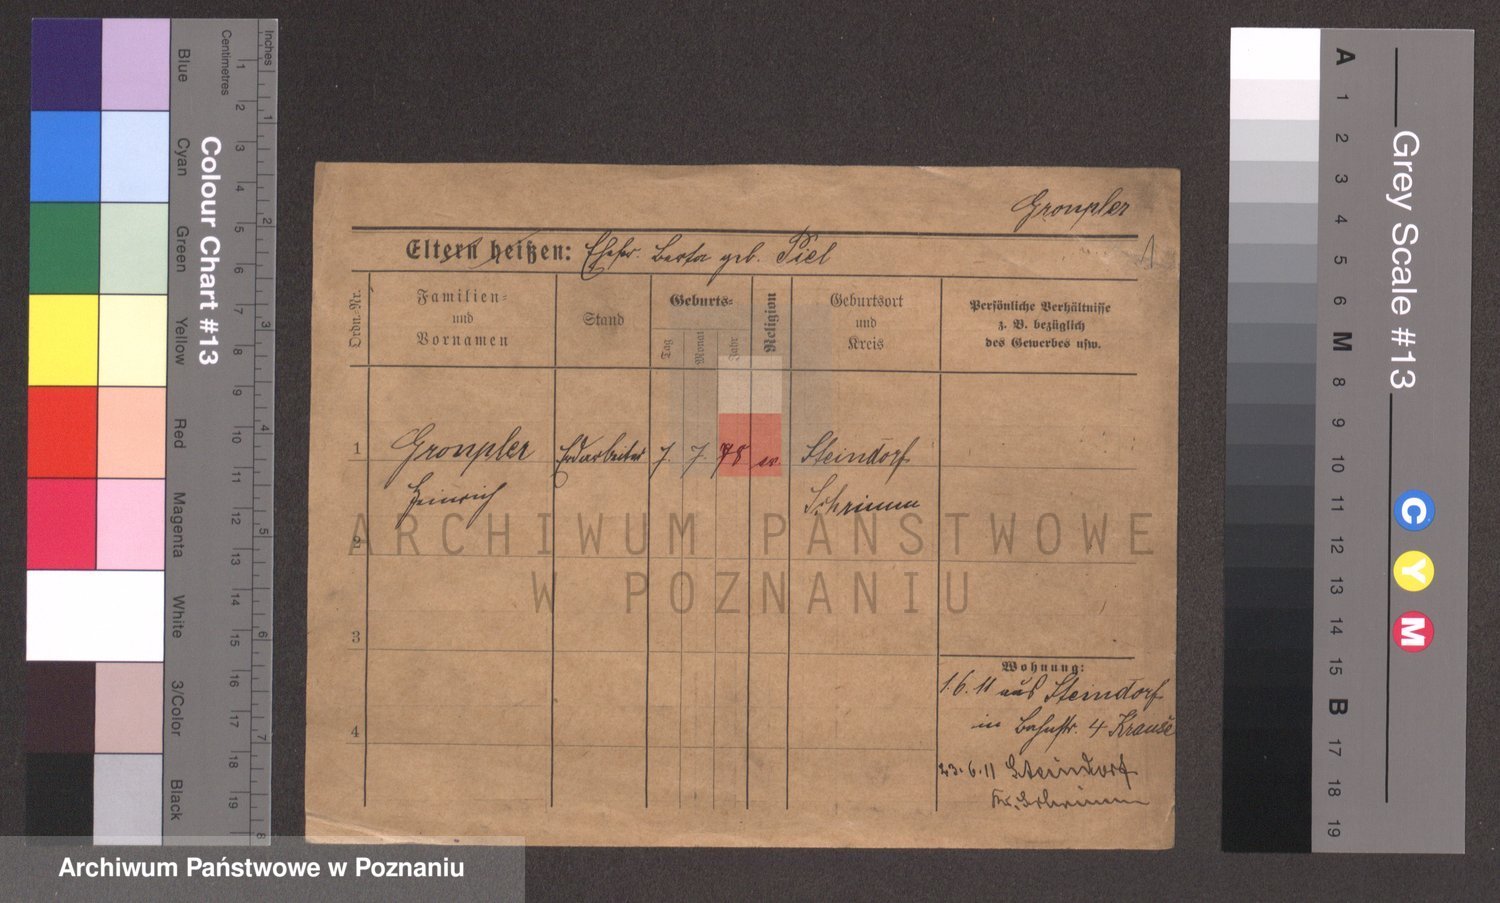 Inches
Centimetres
1 2 3 4 5 6 7 8 9 10 11 12 13 14 15 16 17 18 19
1 2 3 4 5 6 7 8
Colour Chart #13
Blue
Cyan
Green
Yellow
Red
Magenta
White
3/Color
Black
Gronpler
1
Eltern heißen: Ehefr. Berta geb. Piel
Ordn.-Nr.
Familien-
und
Vornamen
Stand
Geburts-
Tag
Monat
Jahr
Religion
Geburtsort
und
Kreis
Persönliche Verhältnisse
z. B. bezüglich
des Gewerbes usw.
1 Gronpler Erdarbeiter 7. 7. 78 ev Steindorf
Heinrich Schrimm
2
3
4
Wohnung:
1.6.11 aus Steindorf
in Bahnstr. 4 Krause
23.6.11 Steindorf
Kr. Schrimm
ARCHIWUM PAŃSTWOWE
W POZNANIU
Grey Scale #13
A 1 2 3 4 5 6 M 8 9 10 11 12 13 14 15 B 17 18 19
C
Y
M
Archiwum Państwowe w Poznaniu